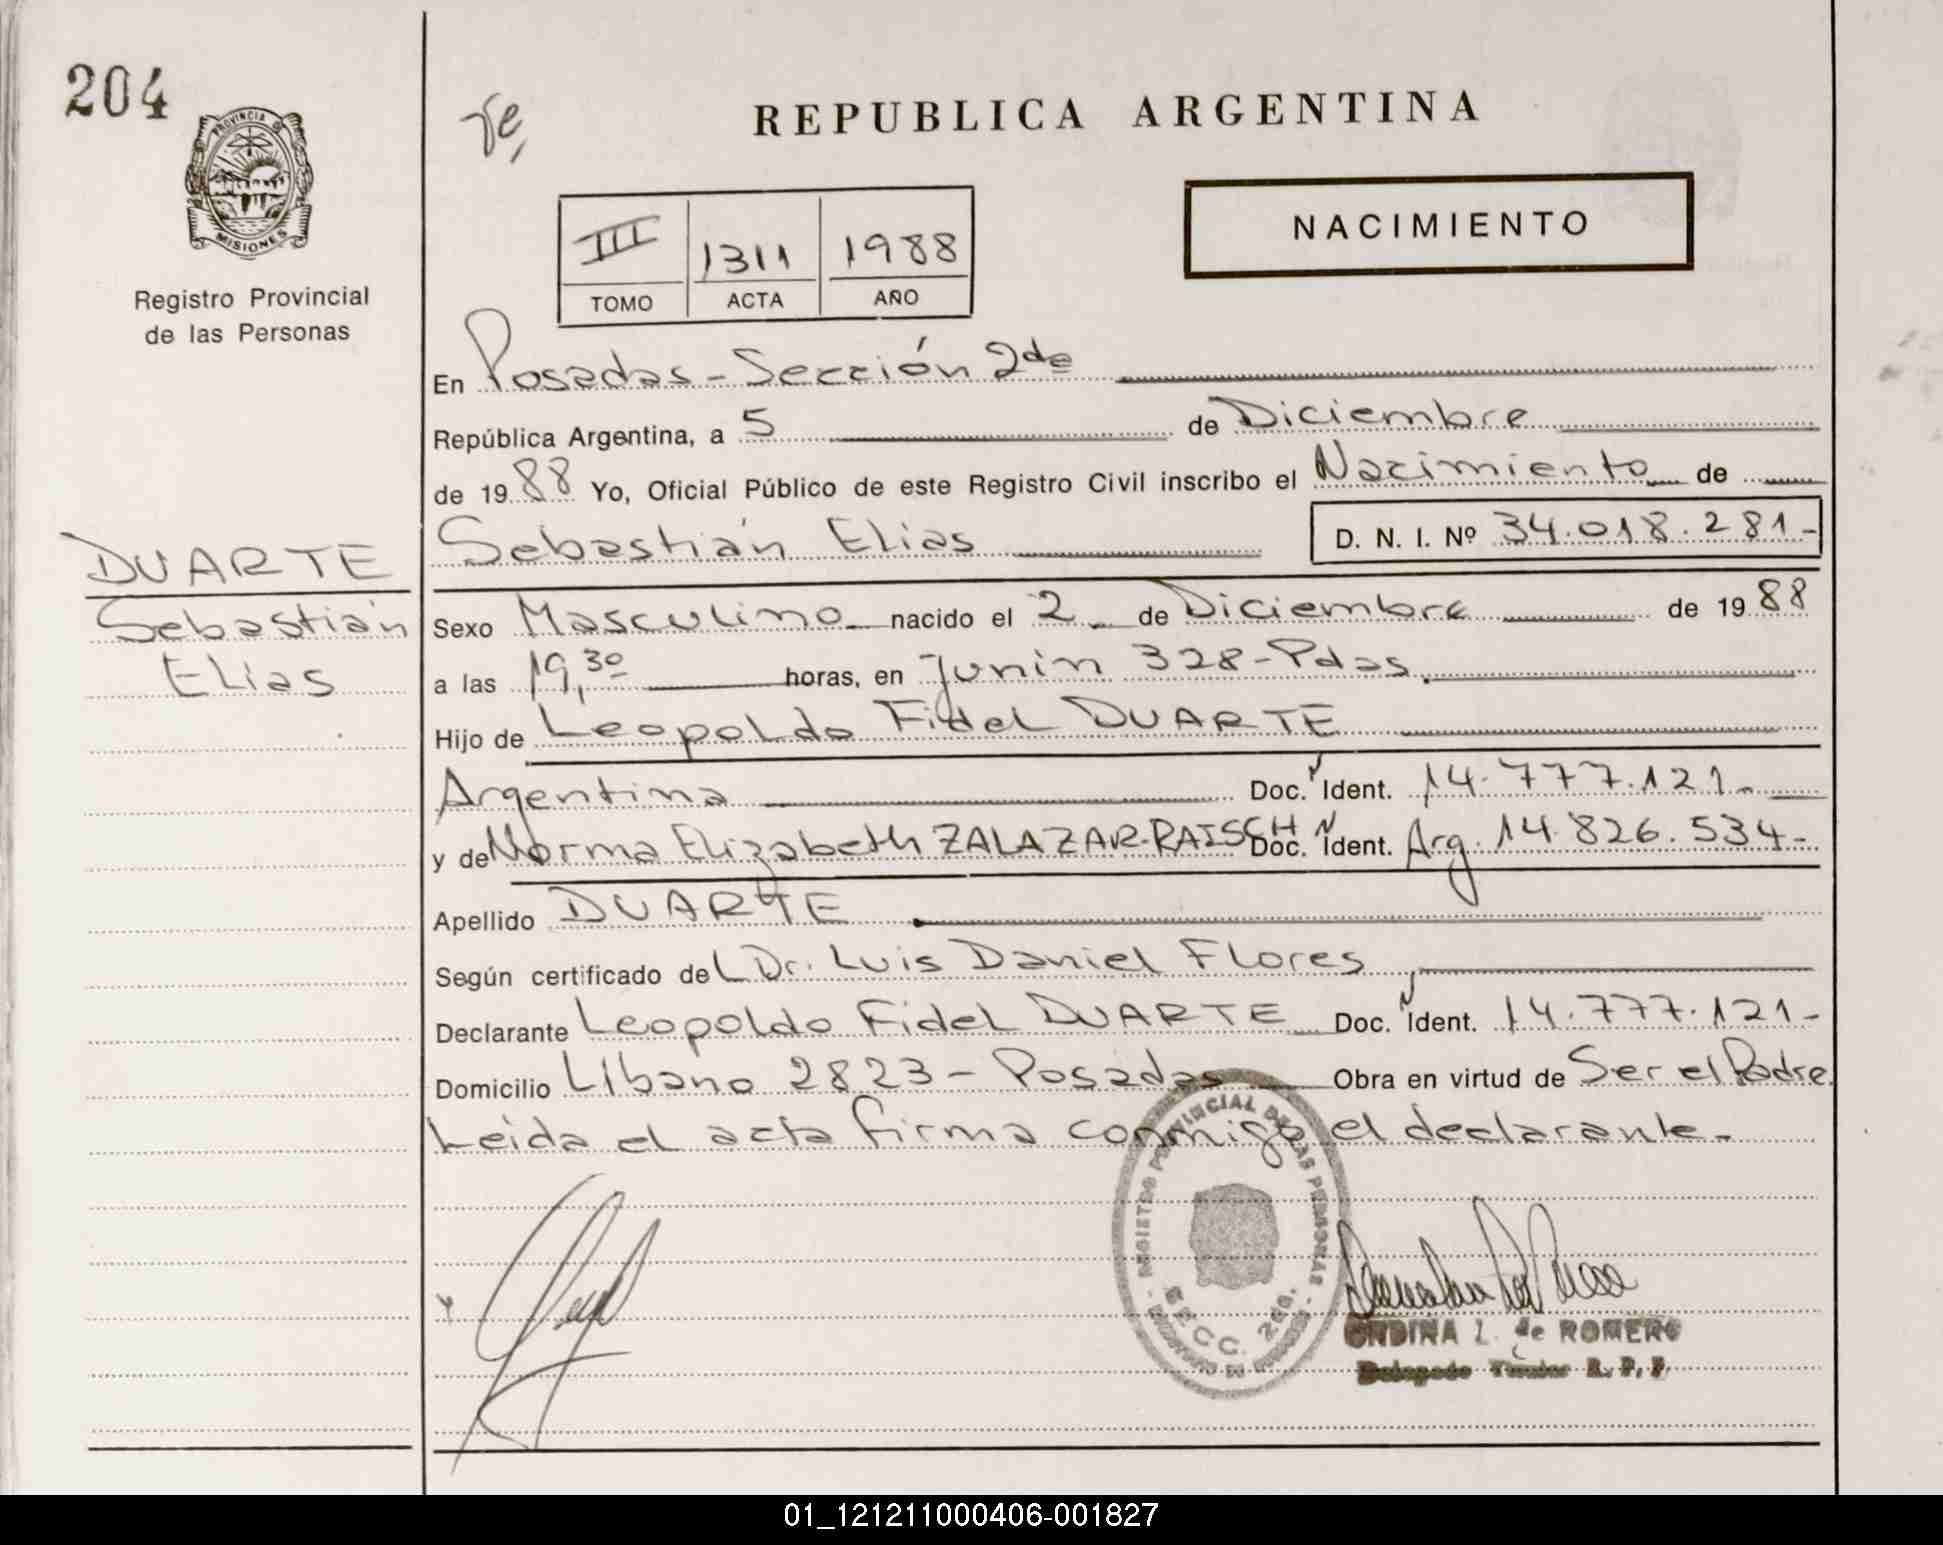 204
PROVINCIA DE
MISIONES
Registro Provincial
de las Personas
REPUBLICA ARGENTINA
NACIMIENTO
III 1311 1988
TOMO ACTA AÑO
En Posadas - Sección 2da
República Argentina, a 5 de Diciembre
de 1988 Yo, Oficial Público de este Registro Civil inscribo el Nacimiento de
Sebastián Elias D. N. I. Nº 34.018.281-
DUARTE
Sebastián
Elias
Sexo Masculino nacido el 2 de Diciembre de 1988
a las 19,30 horas, en Junin 328-Pdas.
Hijo de Leopoldo Fidel DUARTE
Argentina Doc. Ident. 14.777.121-
y de Norma Elizabeth ZALAZAR-RAISCH Doc. Ident. Arg. 14.826.534-
Apellido DUARTE
Según certificado del Dr. Luis Daniel Flores
Declarante Leopoldo Fidel DUARTE Doc. Ident. 14.777.121-
Domicilio Líbano 2823 - Posadas Obra en virtud de Ser el Padre.
Leída el acta firma conmigo el declarante.-
REGISTRO PROVINCIAL DE LAS PERSONAS
SECC. 2da.
ONDINA L. de ROMERO
Delegado Titular R. P. P.
01_121211000406-001827